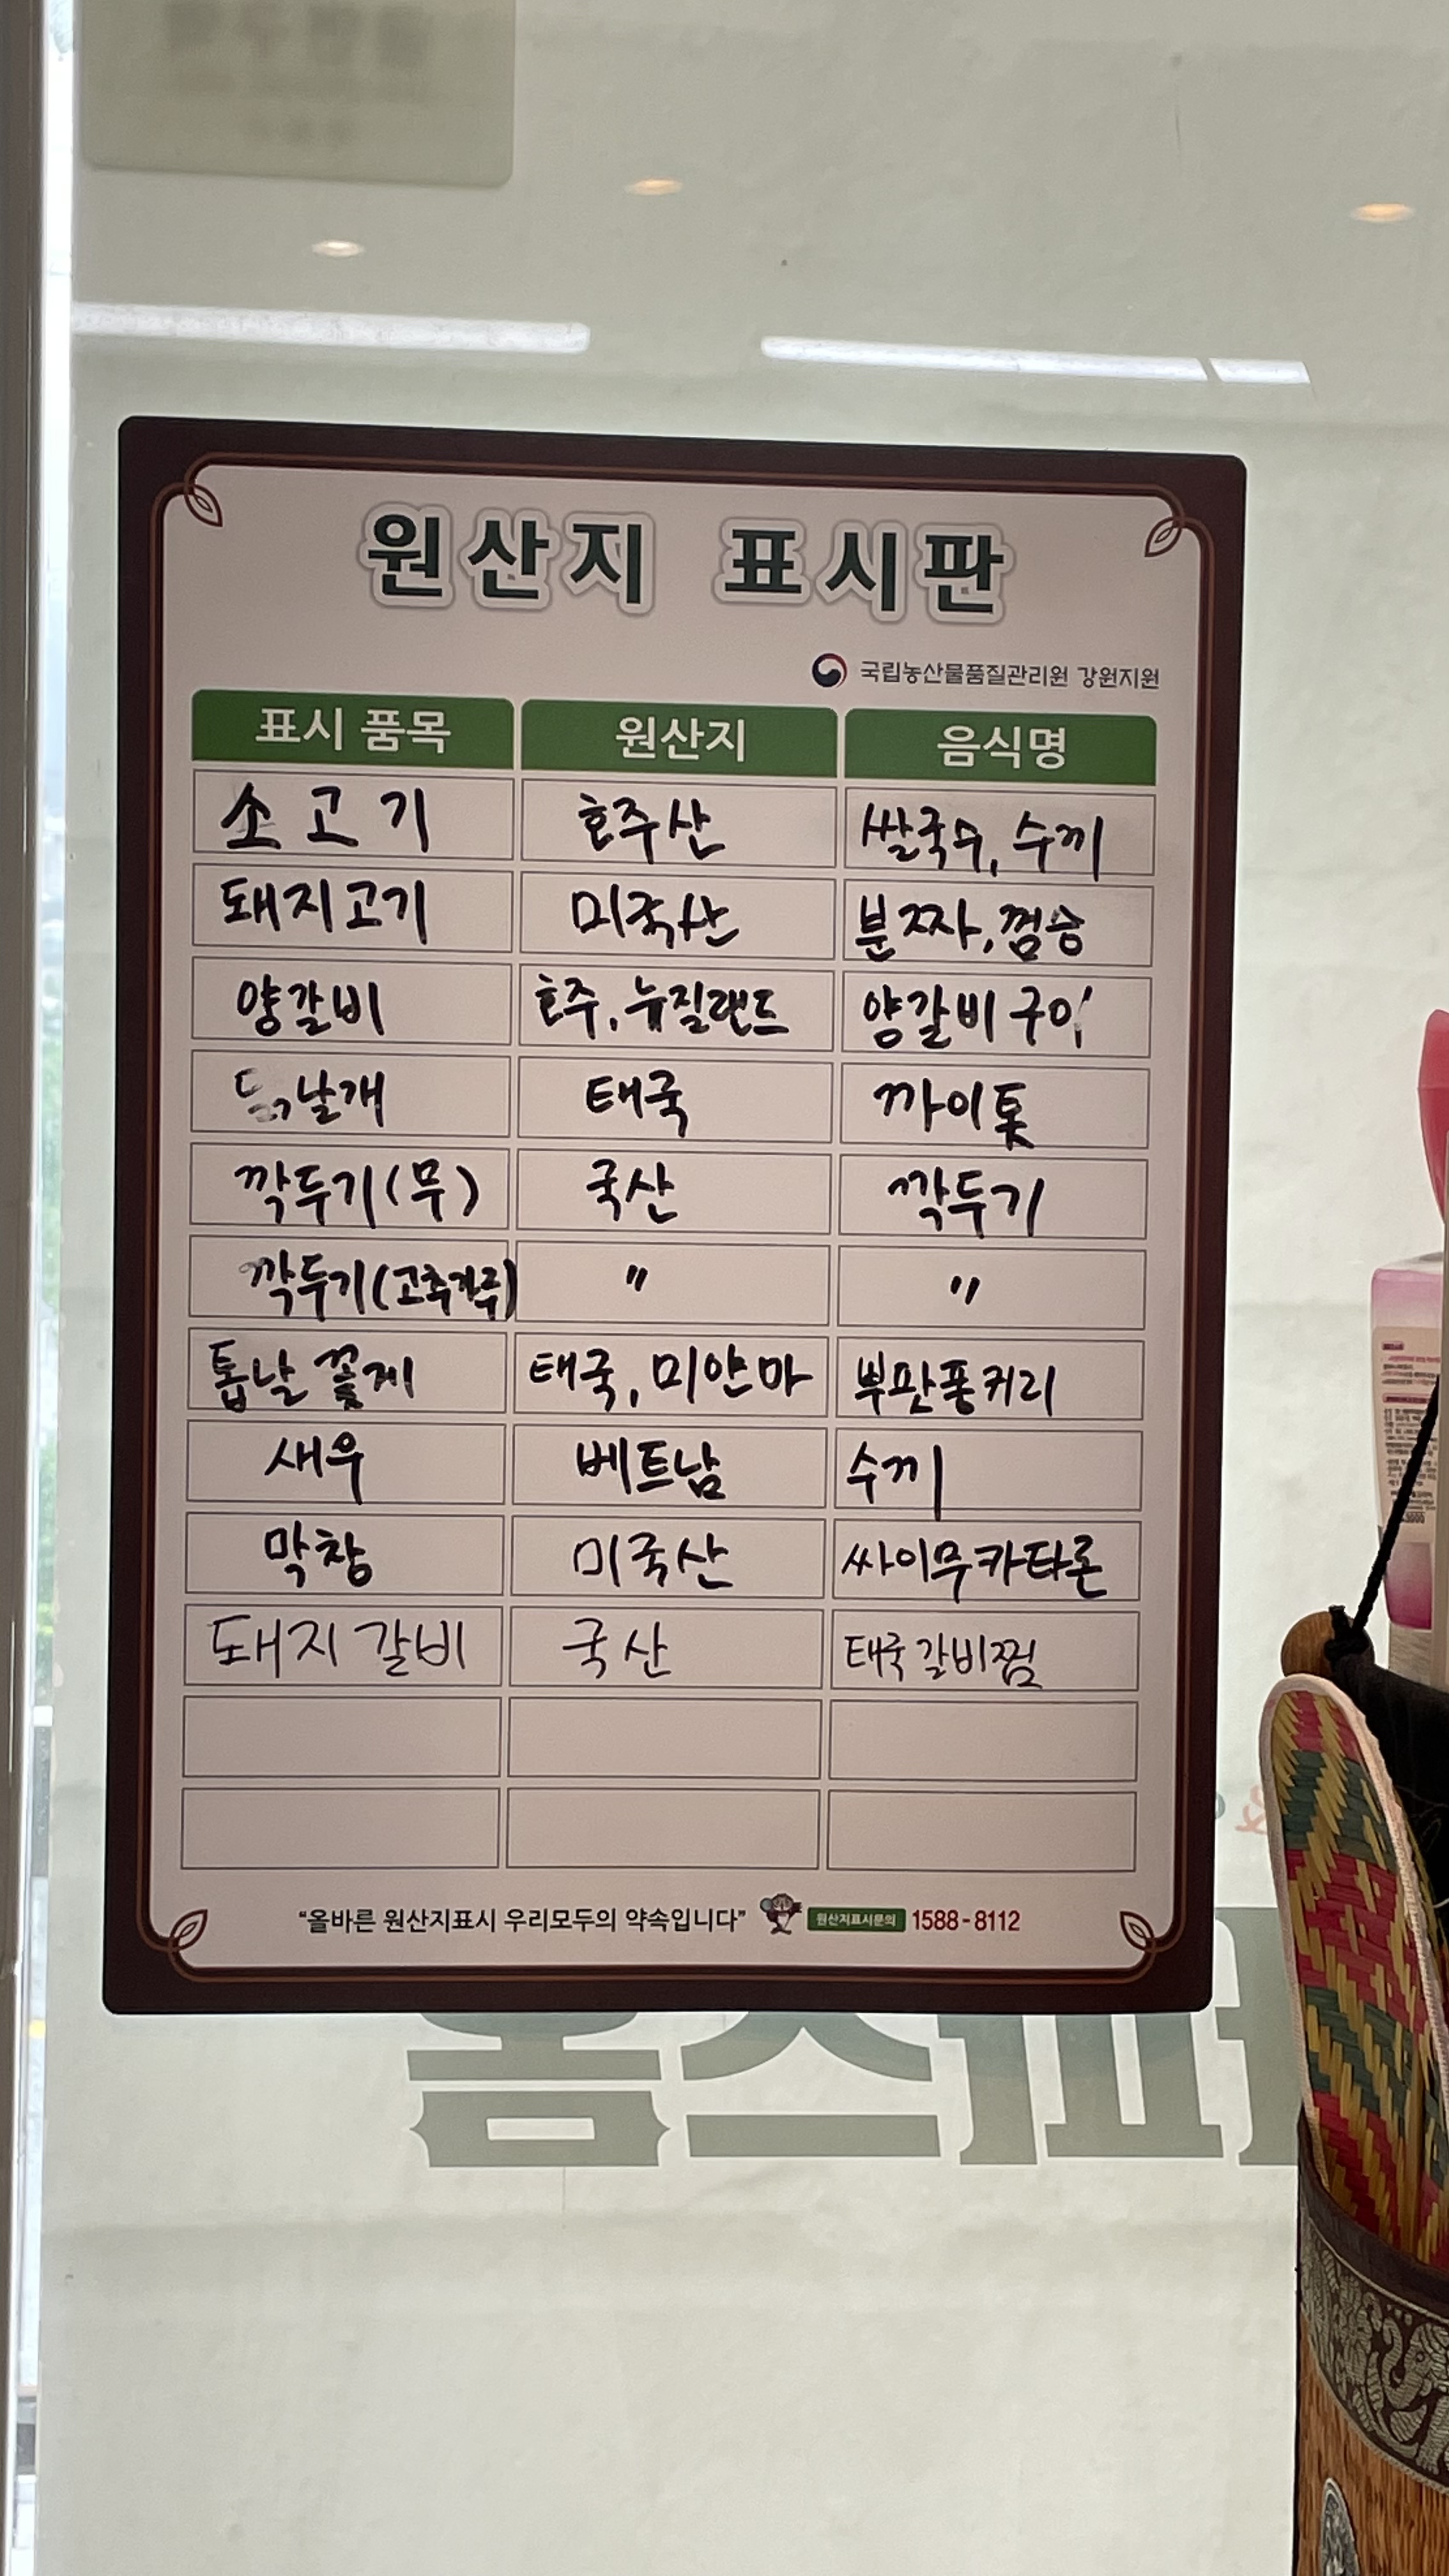 원산지 표시판
국립농산물품질관리원 강원지원
표시 품목 원산지 음식명
소고기 호주산 쌀국수, 수끼
돼지고기 미국산 분짜, 껌승
양갈비 호주, 뉴질랜드 양갈비 구이
닭날개 태국 까이톳
깍두기(무) 국산 깍두기
깍두기(고추가루) " "
톱날 꽃게 태국, 미얀마 뿌판퐁커리
새우 베트남 수끼
막창 미국산 싸이무카타론
돼지갈비 국산 태국갈비찜
“올바른 원산지표시 우리모두의 약속입니다” 원산지표시문의 1588-8112